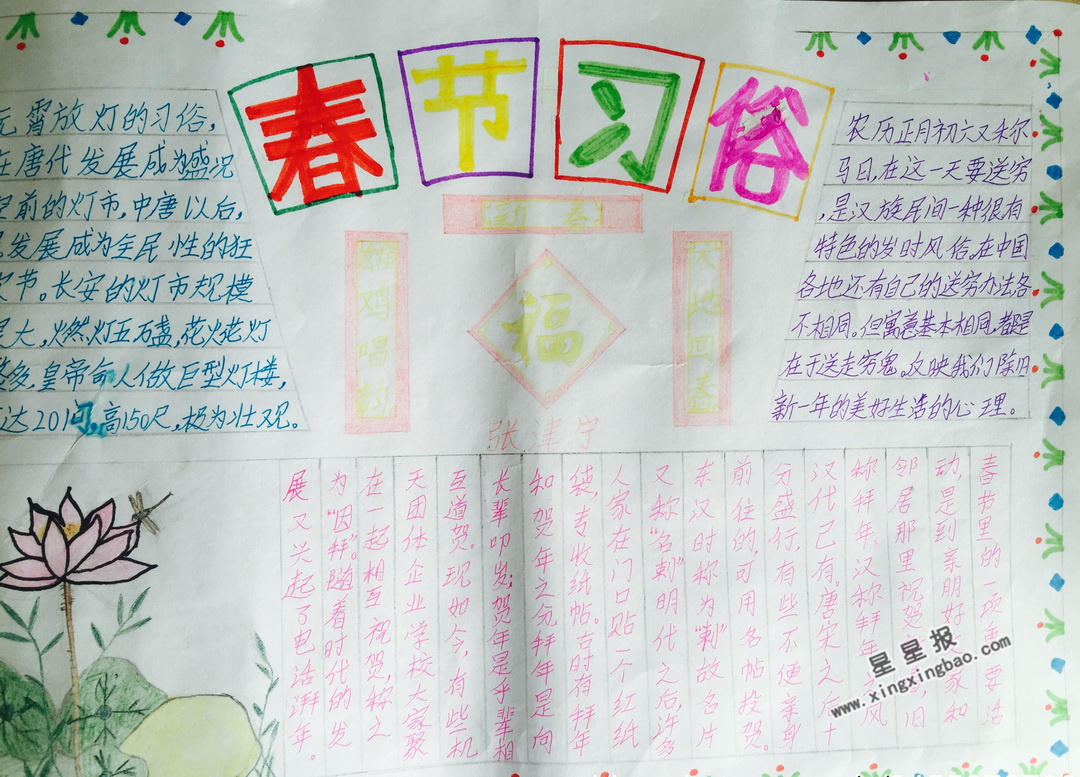 春节习俗
元宵放灯的习俗，
在唐代发展成为盛况
前的灯市，中唐以后，
发展成为全民性的狂
节。长安的灯市规模
大，燃灯五万盏，花火花灯
多，皇帝命人做巨型灯楼，
达20间，高150尺，极为壮观。
春
雄鸡唱韵
福
大地回春
张津宁
农历正月初六又称
马日，在这一天要送穷
，是汉族民间一种很有
特色的岁时风俗。在中国
各地还有自己的送穷办法各
不相同。但寓意基本相同，都是
在于送走穷鬼。反映我们除旧
新一年的美好生活的心理。
春节里的一项要活
动，是到亲朋好家和
邻居那里祝贺，旧
称拜年。汉称拜年风
汉代已有。唐宋之后十
分盛行，有些不便亲身
前住的，可用名帖投贺。
东汉时称为"刺"故名片
又称"名刺"明代之后，许多
人家在门口贴一个红纸
袋，专收纸帖。古时有拜年
和贺年之分拜年是向
长辈叩岁；贺年是平辈相
互道贺。现如今，有些机
天团体企业学校大家聚
在一起相互祝贺，称之
为"因拜"。随着时代的发
展又兴起了电话拜年。
星星报
www.xingxingbao.com